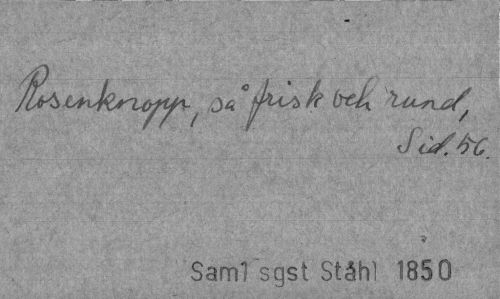 Rosenknopp, så frisk och rund,
Sid. 56.
Saml sgst Ståhl 1850